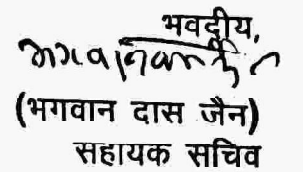 भवदीय,
(भगवान दास जैन)
सहायक सचिव